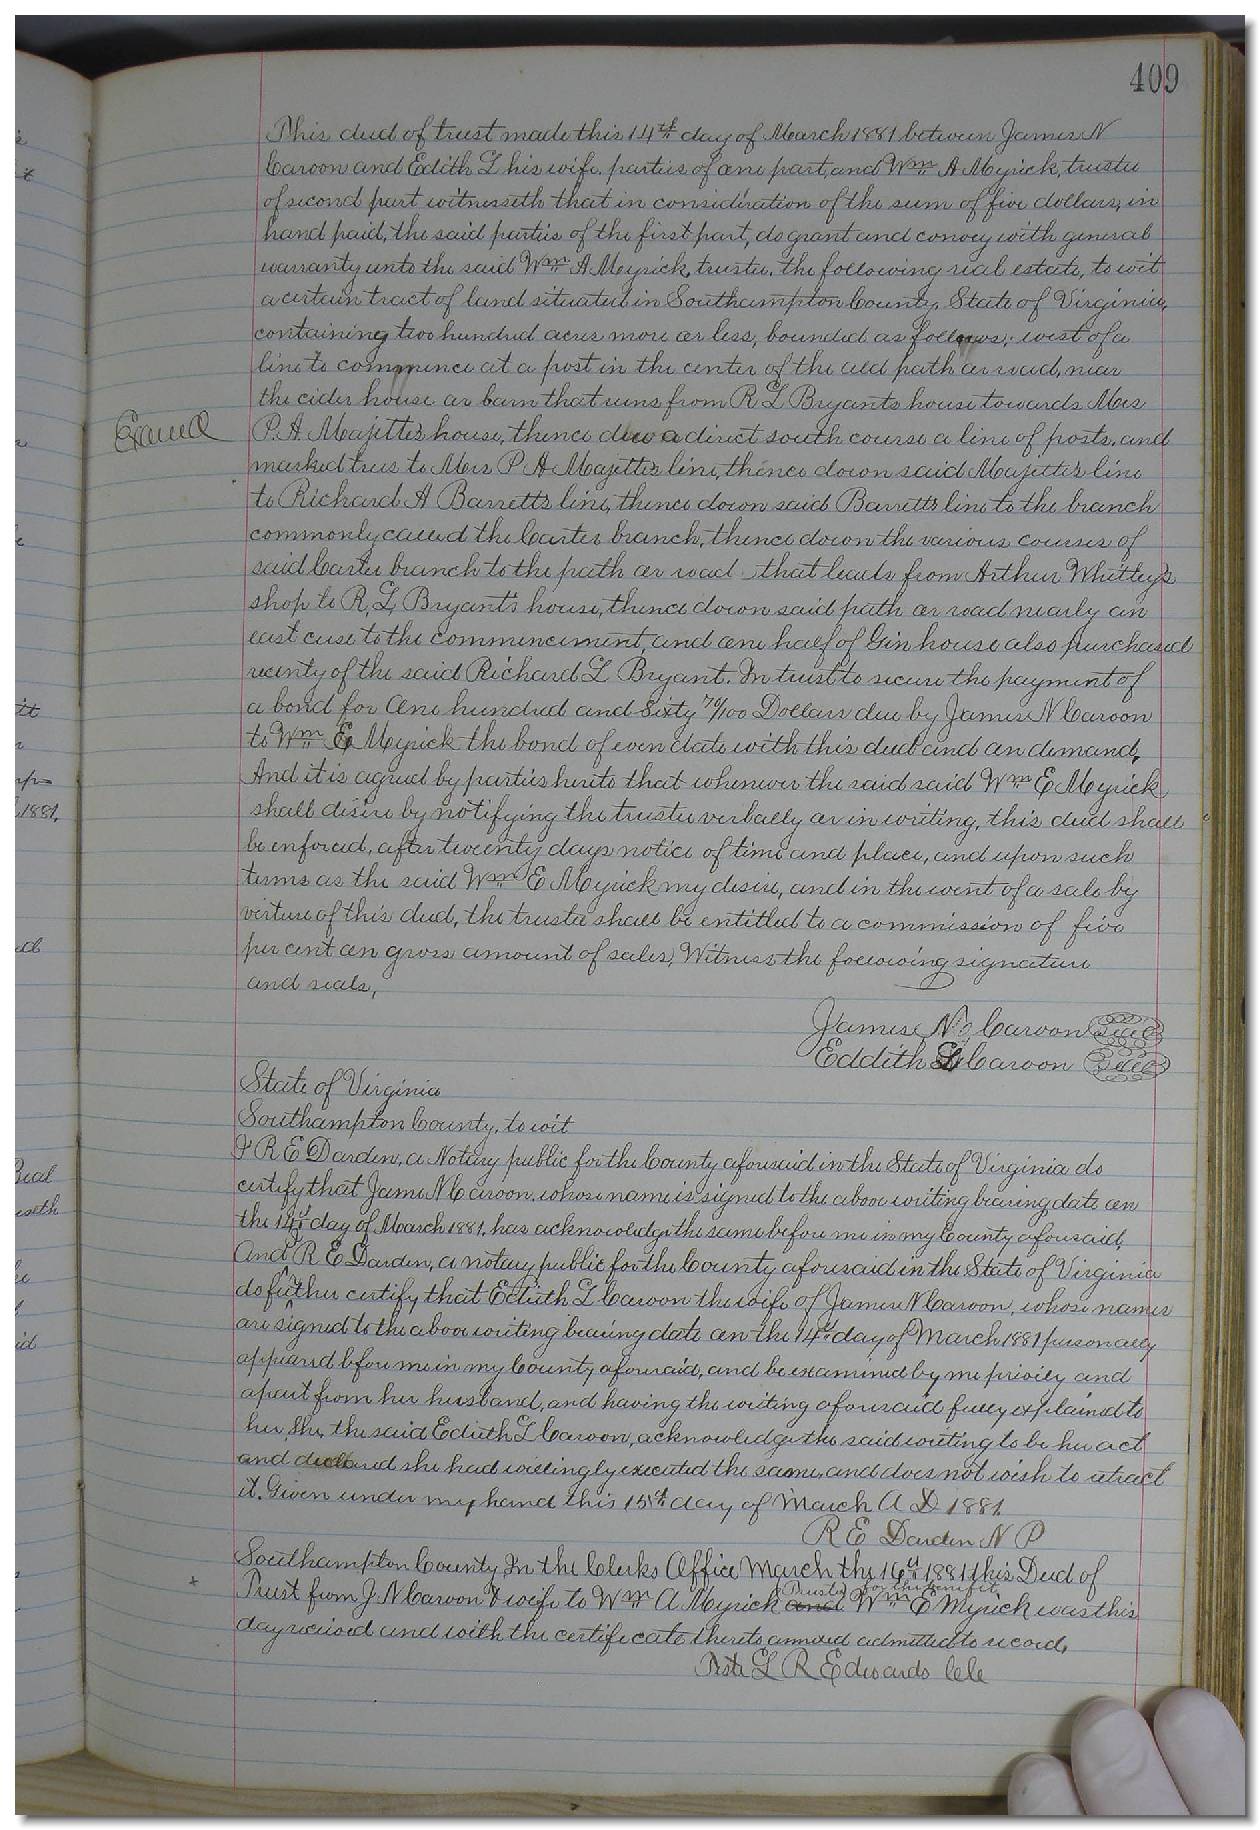 409
This deed of trust made this 14th day of March 1881 between James N
Caroon and Edith L his wife, parties of one part, and Wm A Myrick, trustee
of second part witnesseth that in consideration of the sum of five dollars, in
hand paid, the said parties of the first part, do grant and convey with general
warranty unto the said Wm A Myrick, trustee, the following real estate, to wit
a certain tract of land situated in Southampton County, State of Virginia,
containing two hundred acres more or less, bounded as follows; west of a
line to commence at a post in the center of the old path or road, near
the cider house or barn that runs from R L Bryants house towards Mrs
Exaned
P. A. Majette's house, thence due a direct south course a line of posts, and
marked trees to Mrs P A Majette's line, thence down said Majette's line
to Richard A Barrett's line, thence down said Barrett's line to the branch
commonly called the Carter branch, thence down the various courses of
said Carter branch to the path or road that leads from Arthur Whitley's
shop to R, L, Bryant's house, thence down said path or road nearly an
east cuse to the commencement, and one half of Gin house also purchased
recenty of the said Richard L Bryant. In trust to secure the payment of
a bond for One hundred and Sixty 70/100 Dollars due by James N Caroon
to Wm E Myrick the bond of even date with this deed and on demand,
And it is agreed by parties hereto that whenever the said said Wm E Myrick
shall desire by notifying the trustee verbally or in writing, this deed shall
be enforced, after twenty days notice of time and place, and upon such
terms as the said Wm E Myrick my desire, and in the event of a sale by
virtue of this deed, the trustee shall be entitled to a commission of five
per cent on gross amount of sales, Witness the following signature
and seals,
James N, Caroon Seal
Eddith L Caroon Seal
State of Virginia
Southampton County, to wit
I R E Darden, a Notary public for the County aforesaid in the State of Virginia do
certify that Jame N Caroon, whose name is signed to the above writing bearing date on
the 14th day of March 1881, has acknowledge the same before me in my County aforesaid,
And I R E Darden, a notary public for the County aforesaid in the State of Virginia
do further certify that Edieth L Caroon the wife of James N Caroon, whose names
are signed to the above writing bearing date on the 14th day of March 1881 personally
appeared before me in my County aforesaid, and be examined by me privily and
apart from her husband, and having the writing aforesaid fully explained to
her, She, the said Edieth L Caroon, acknowledge the said writing to be her act
and declared she had willingly executed the same, and does not wish to retract
it. Given under my hand this 15th day of March A D 1881.
R E Darden N P
Southampton County In the Clerks Office March the 16th 1881 this Deed of
Trustee for the benefit
Trust from J. N Caroon & wife to Wm A Myrick and Wm E Myrick was this
day received and with the certificate thereto annexed admitted to record,
Teste L R Edwards Clk